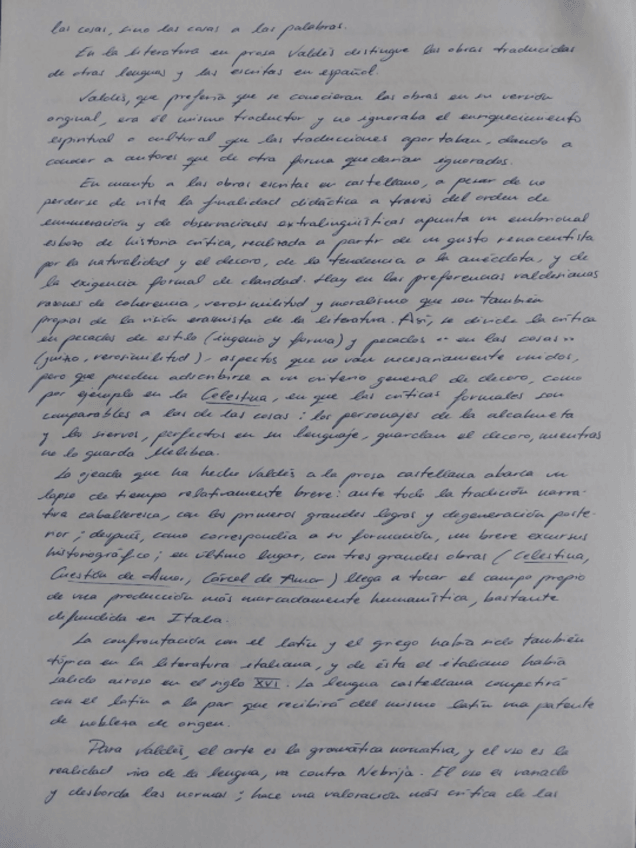 las cosas, sino las cosas a las palabras.
En la literatura en prosa Valdés distingue las obras traducidas
de otras lenguas y las escritas en español.
Valdés, que prefería que se conocieran las obras en su versión
original, era él mismo traductor y no ignoraba el enriquecimiento
espiritual o cultural que las traducciones aportaban, dando a
conocer a autores que de otra forma quedarían ignorados.
En cuanto a las obras escritas en castellano, a pesar de no
perderse de vista la finalidad didáctica a través del orden de
enumeración y de observaciones extralingüísticas apunta un embrional
esbozo de historia crítica, realizada a partir de un gusto renacentista
por la naturalidad y el decoro, de la tendencia a la anécdota, y de
la exigencia formal de claridad. Hay en las preferencias valdesianas
razones de coherencia, verosimilitud y moralismo que son también
propias de la visión erasmista de la literatura. Así, se divide la crítica
en pecados de estilo (ingenio y forma) y pecados "en las cosas"
(juicio, verosimilitud), aspectos que no van necesariamente unidos,
pero que pueden adscribirse a un criterio general de decoro, como
por ejemplo en la Celestina, en que las críticas formales son
comparables a las de las cosas: los personajes de la alcahueta
y los siervos, perfectos en su lenguaje, guardan el decoro, mientras
no lo guarda Melibea.
La ojeada que ha hecho Valdés a la prosa castellana abarca un
lapso de tiempo relativamente breve: ante todo la tradición narra-
tiva caballeresca, con los primeros grandes logros y degeneración poste-
rior; después, como correspondía a su formación, un breve excursus
historiográfico; en último lugar, con tres grandes obras (Celestina,
Cuestión de Amor, Cárcel de Amor) llega a tocar el campo propio
de una producción más marcadamente humanística, bastante
difundida en Italia.
La confrontación con el latín y el griego había sido también
tópica en la literatura italiana, y de ésta el italiano había
salido airoso en el siglo XVI. La lengua castellana competirá
con el latín a la par que recibirá del mismo latín una patente
de nobleza de origen.
Para Valdés, el arte es la gramática normativa, y el uso es la
realidad viva de la lengua, va contra Nebrija. El uso es variado
y desborda las normas; hace una valoración más crítica de las